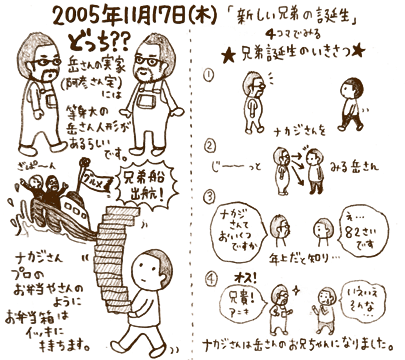 2005年11月17日(木)
どっち??
岳さんの実家
(阿彦さん家)
には
等身大の
岳さん人形が
あるらしい
です。
ざぱーん
グルメ
兄弟船
出航!
ナカジさん
プロの
お弁当やさんの
ように
お弁当箱は
イッキに
持ちます。
「新しい兄弟の誕生」
4コマでみる
★兄弟誕生のいきさつ★
①
ナカジさんを
②
じーーっと
みる岳さん
③
ナカジ
さんて
おいくつ
ですか
え…
82さい
です
年上だと知り…
④
オス!
兄貴!
アニキ
いえいえ
そんな…
ナカジさんは岳さんのお兄ちゃんになりました。